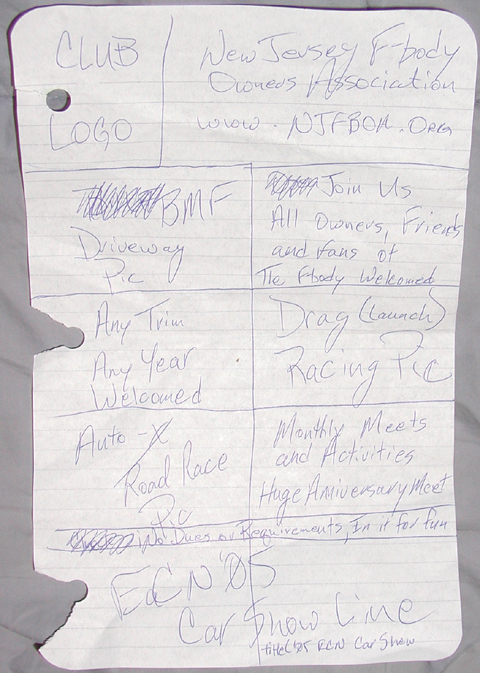 CLUB
LOGO
New Jersey F-body
Owners Association
www.NJFBOA.Org
BMF
Driveway
Pic
Join Us
All Owners, Friends
and fans of
The Fbody Welcomed
Any Trim
Any Year
Welcomed
Drag (Launch)
Racing Pic
Auto-X
Road Race
Pic
Monthly Meets
and Activities
Huge Anniversary Meet
No Dues or Requirements, In it for fun
ECN '05
Car Show Line
title '05 ECN Car Show